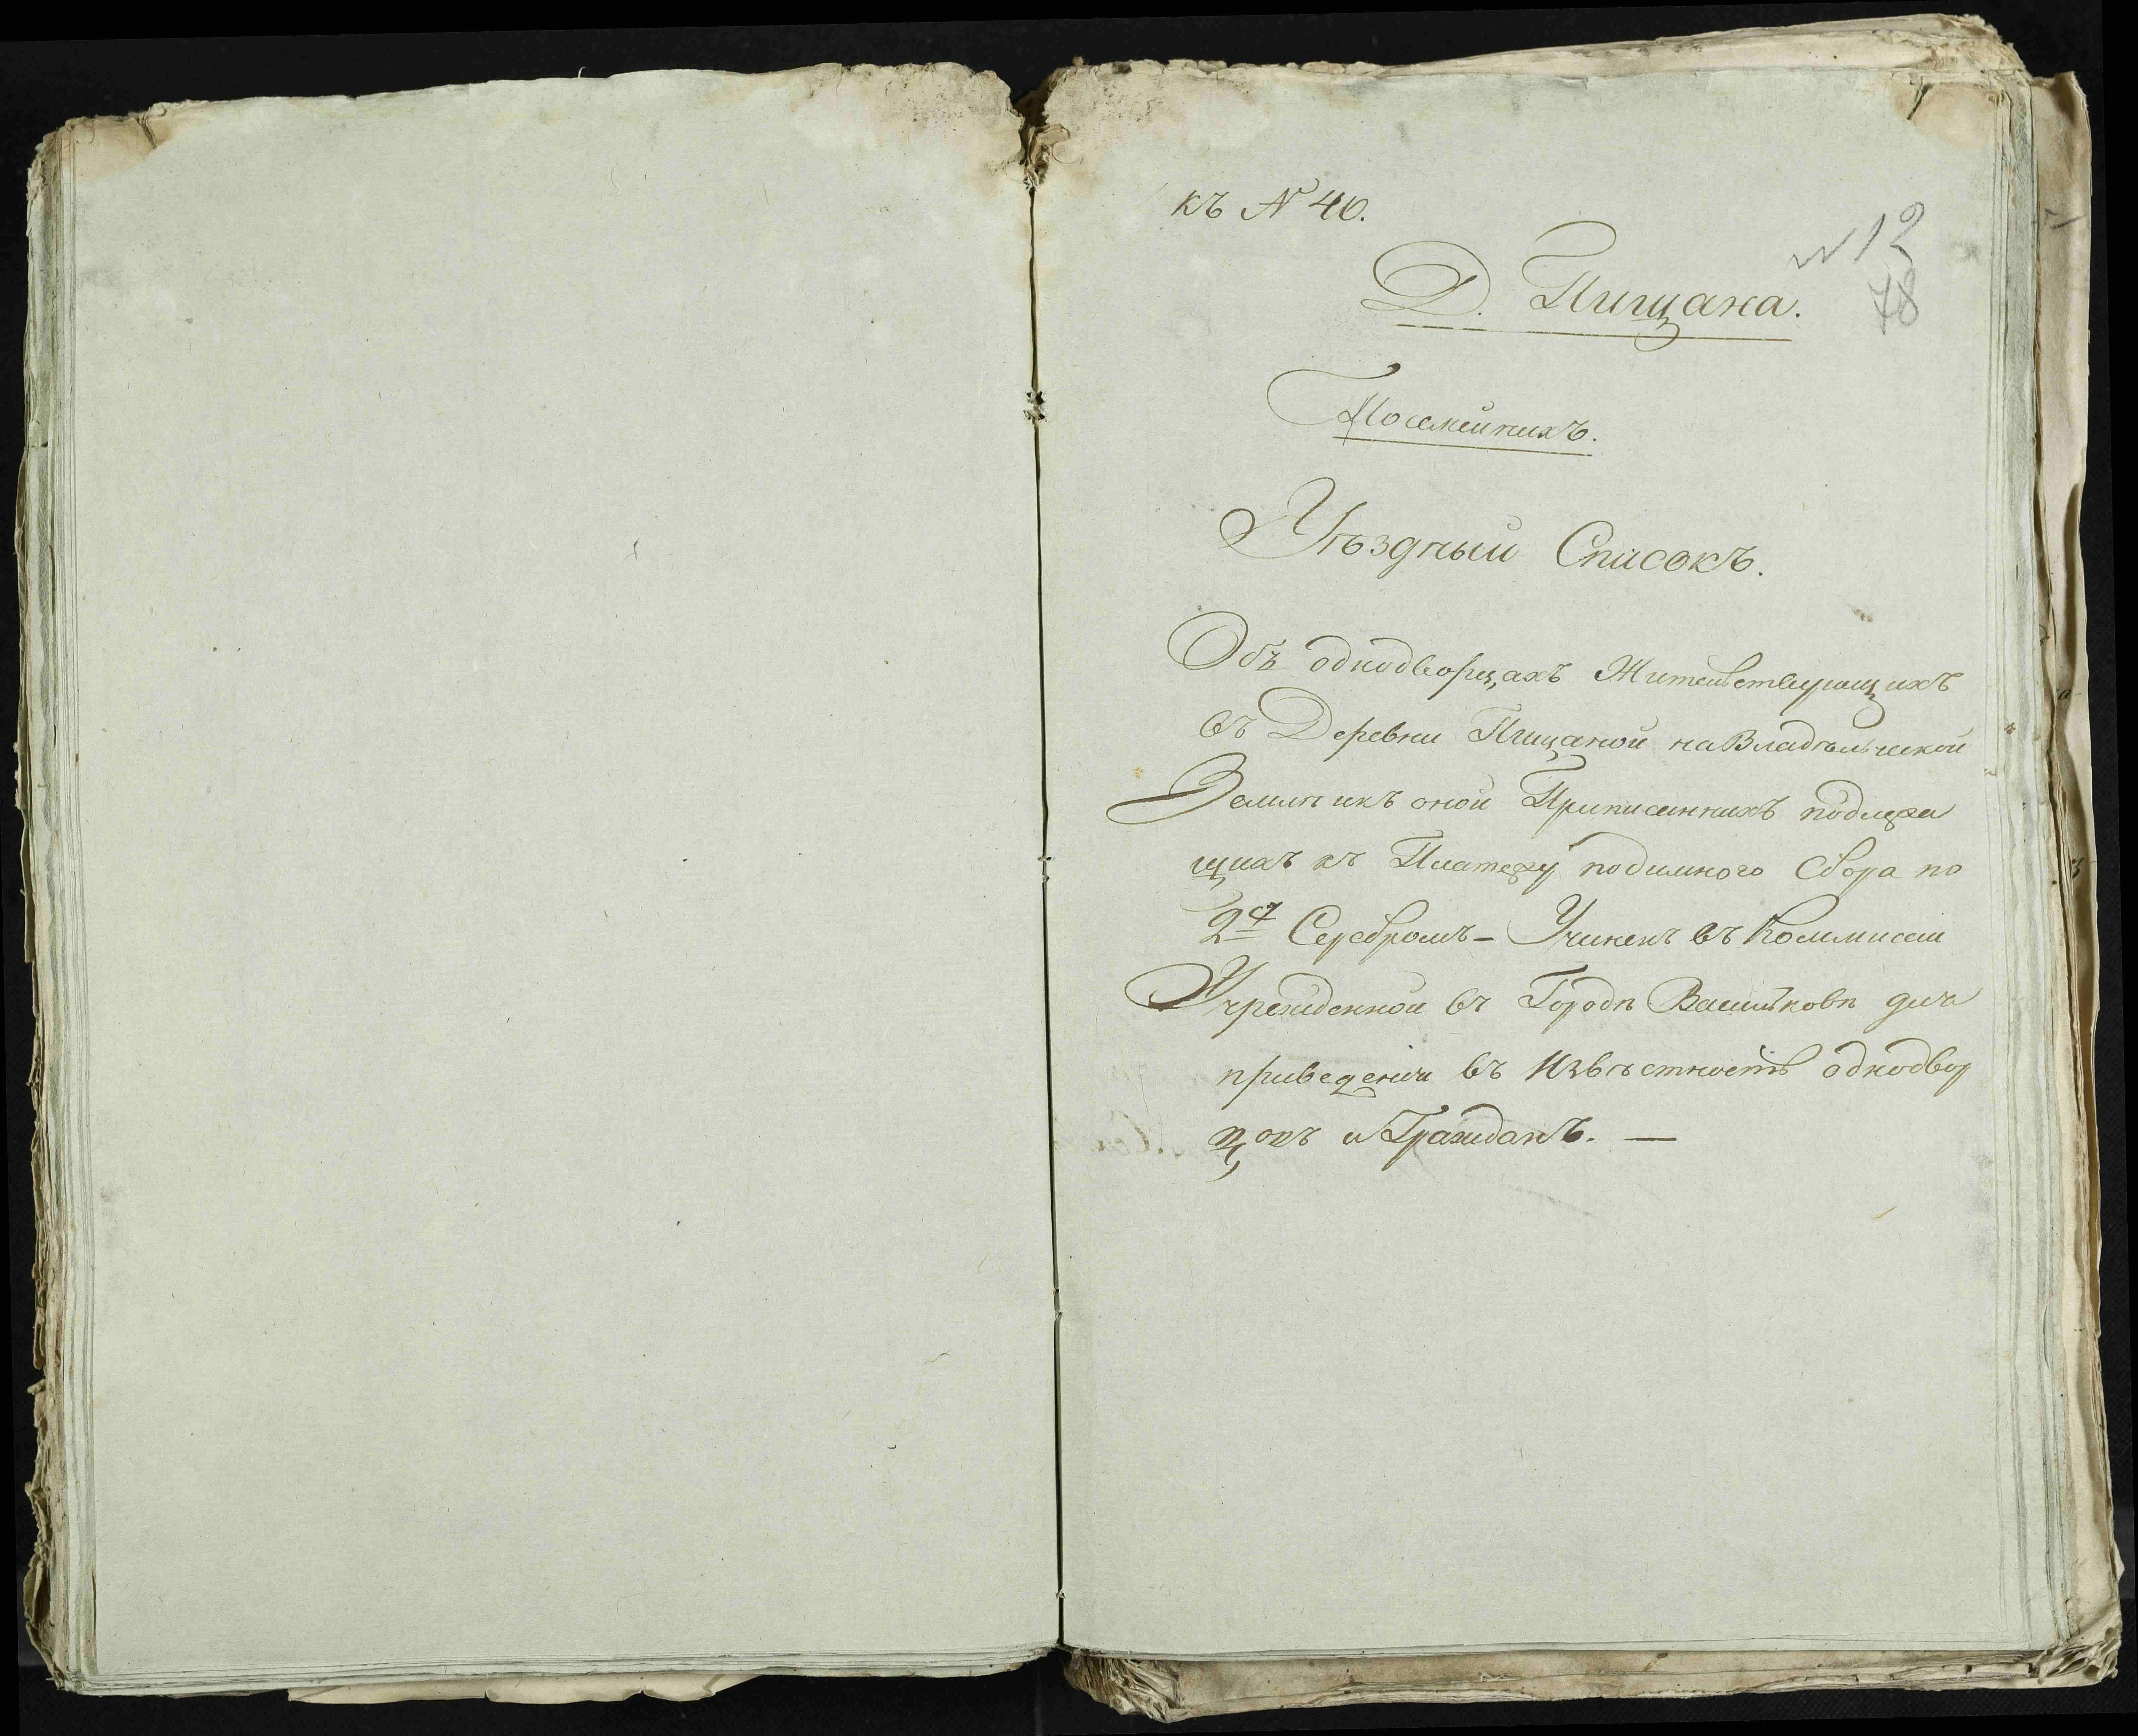 къ № 40.
№ 12
78
Д. Пищана.
Посемейнихъ.
Уѣздный Списокъ.
Объ однодворцахъ Жительствующихъ
въ Деревни Пищаной на Владѣльческой
Землѣ и къ оной Приписаннихъ подлежа
щихъ къ Платежу подимного Сбора по
Серебромъ – Учиненъ въ Коммисіи
Учрежденной въ Городѣ Васильковѣ для
приведенія въ Извѣстность однодвор
цовъ и Гражданъ. —